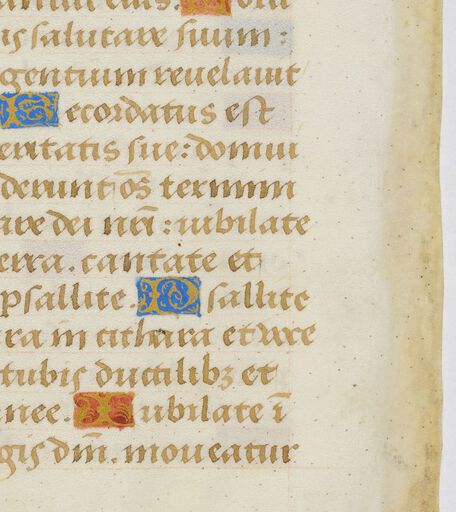 is salutare suum:
gentium revelavit
Recordatus est
eritatis sue: domui
derunt oēs termini
are dei nrī: iubilate
erra. cantate et
psallite. Psallite
ra in cithara et voce
tubis ductilibꝫ et
nee. Iubilate ī
gis dnī. moveatur